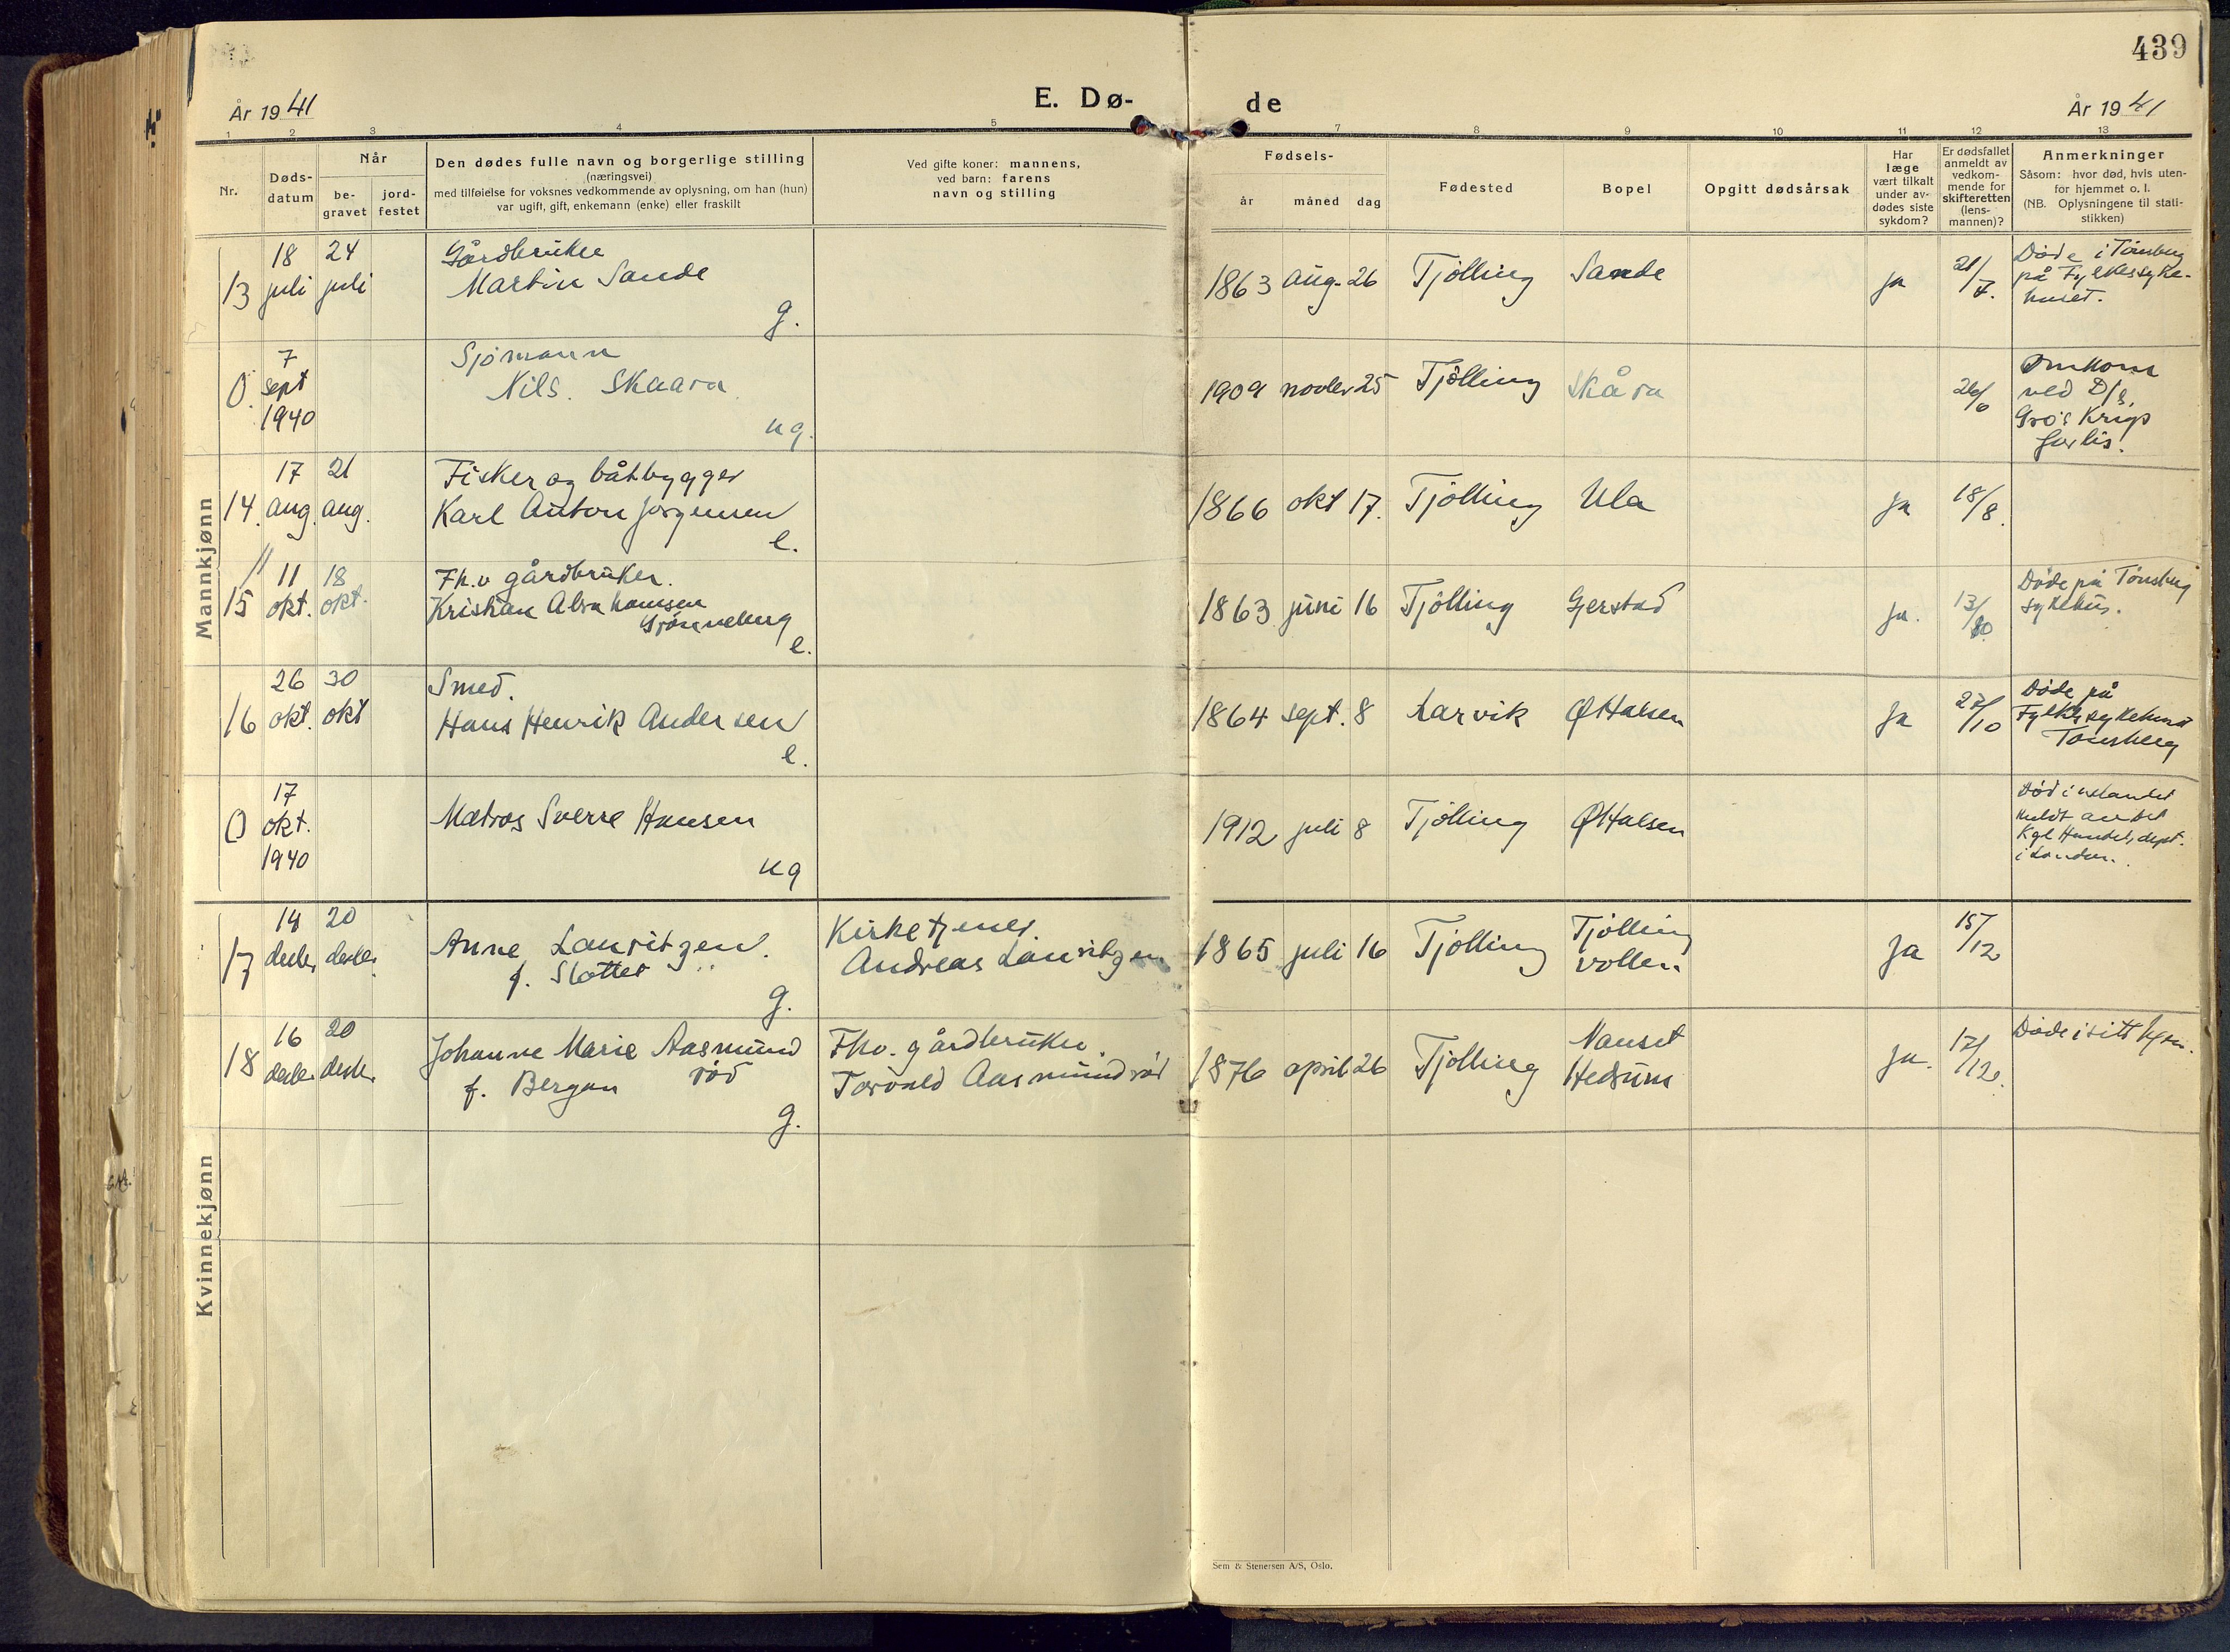 439
År 1941
E. Dø-
de
År 1941
1 2 3 4 5
7 8 9 10 11 12 13
Nr.
Døds-
datum
Når
be-
gravet
jord-
festet
Den dødes fulle navn og borgerlige stilling
(næringsvei)
med tilføielse for voksnes vedkommende av oplysning, om han (hun)
var ugift, gift, enkemann (enke) eller fraskilt
Ved gifte koner: mannens,
ved barn: farens
navn og stilling
Fødsels-
år måned dag
Fødested
Bopel
Opgitt dødsårsak
Har
læge
vært tilkalt
under av-
dødes siste
sykdom?
Er dødsfallet
anmeldt av
vedkom-
mende for
skifteretten
(lens-
mannen)?
Anmerkninger
Såsom: hvor død, hvis uten-
for hjemmet o. l.
(NB. Oplysningene til stati-
stikken)
Mannkjønn
13
18
juli
24
juli
Gårdbruker
Martin Sande
g.
1863 aug. 26 Tjølling Sande
ja
21/7.
Døde i Tønsberg
på Fylkessyke-
huset.
0
7
sept
1940
Sjømann
Nils. Skaara
ug.
1909 novbr 25 Tjølling Skåra
26/6
Omkom
ved D/s.
Gro's Krigs
forlis!
14.
17
aug.
21
aug.
Fisker og båtbygger
Karl Anton Jørgensen
e.
1866 okt 17. Tjølling Ula
ja
18/8.
15
11
okt.
18
okt.
Fh.v gårdbruker.
Kristian Abrahamsen
e.
1863 juni 16 Tjølling Gjerstad
ja.
13/10
Døde på Tønsberg
sykehus.
16
26
okt.
30
okt
Smed.
Hans Henrik Andersen
e.
1864 sept. 8 Larvik Ø Halsen
ja
27/10
Døde på
Fylkessykehuset
Tønsberg
0
17
okt.
1940
Matros Sverre Hansen
ug
1912 juli 8 Tjølling Ø Halsen
Død i utlandet
meldt av det
Kgl Handelsdept.
i London.
Kvinnekjønn
17
14
desbr
20
desbr.
Anne Lauritzen.
f. Slottet
g.
Kirketjener.
Andreas Lauritzen
1865 juli 16 Tjølling
Tjølling
vollen
ja
15/12
18
16
desbr.
20
desbr.
Johanne Marie Aasmund
rød
f. Bergan
g.
Fhv. gårdbruker
Torvald Aasmundrød
1876 april 26 Tjølling
Nanset
Hedrum
ja.
17/12.
Døde i sitt hjem.
Sem & Stenersen A/S, Oslo.